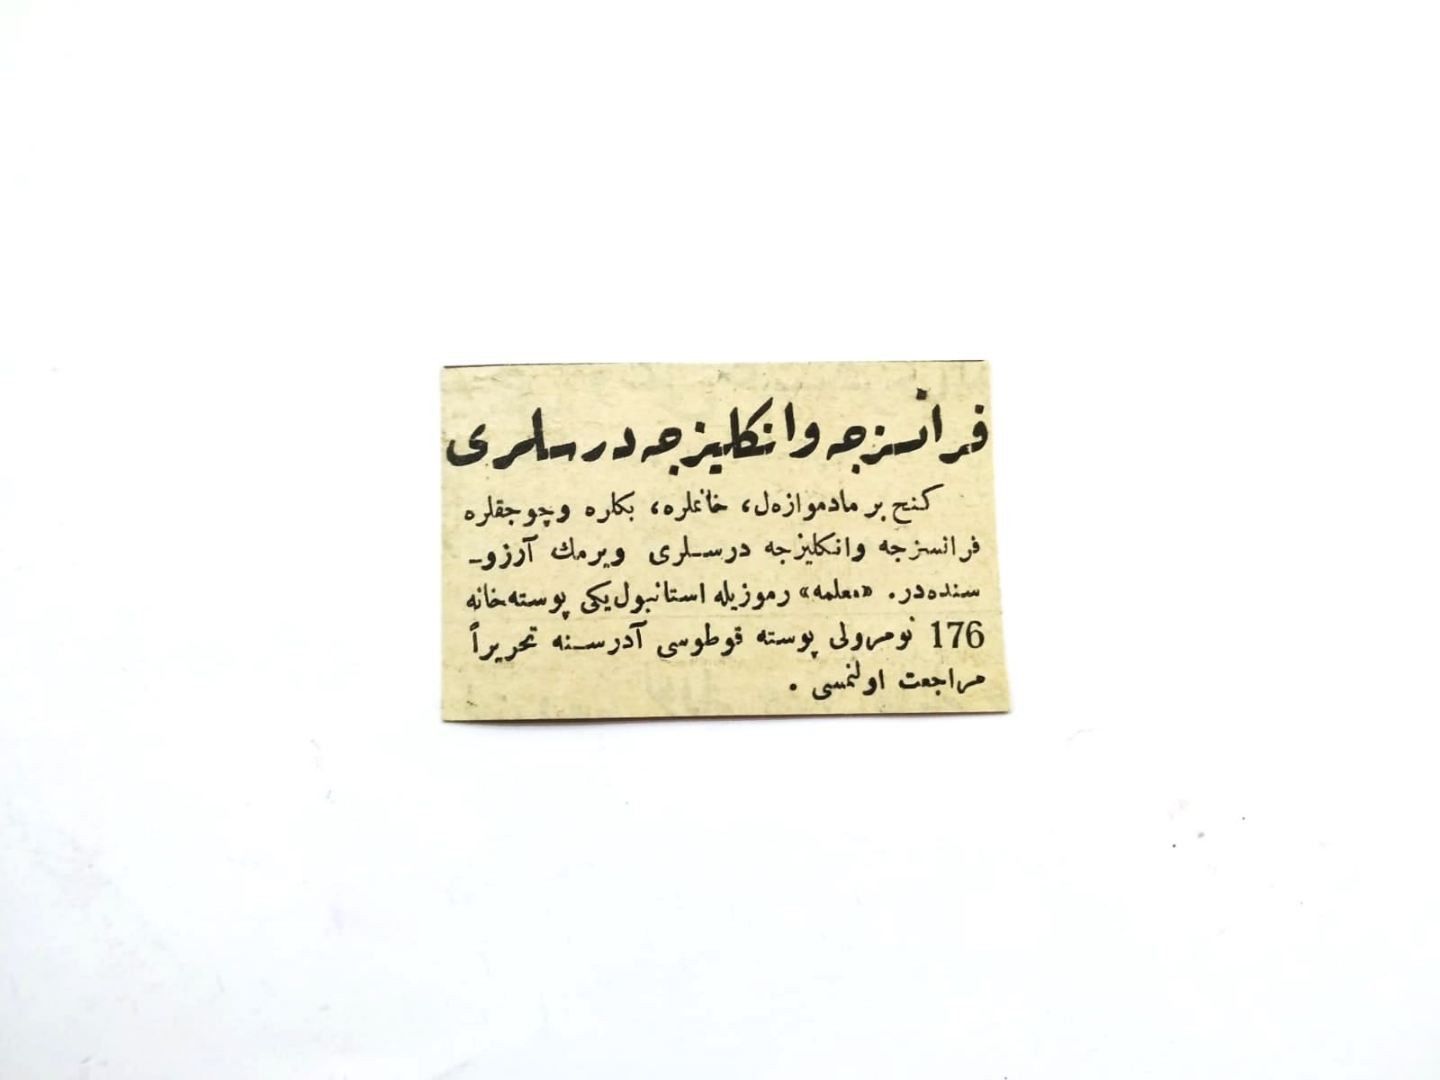 فرانسزجه وانكليزجه درسلری
كنج بر مادموازه‌ل، خانملره، بكلره وچوجقلره
فرانسزجه وانكليزجه درسلری ويرمك آرزو-
سنده‌در. «معلمه» رموزيله استانبول يكی پوسته‌خانه
176 نومرولی پوسته قوطوسی آدرسنه تحريراً
مراجعت اولنمسی .